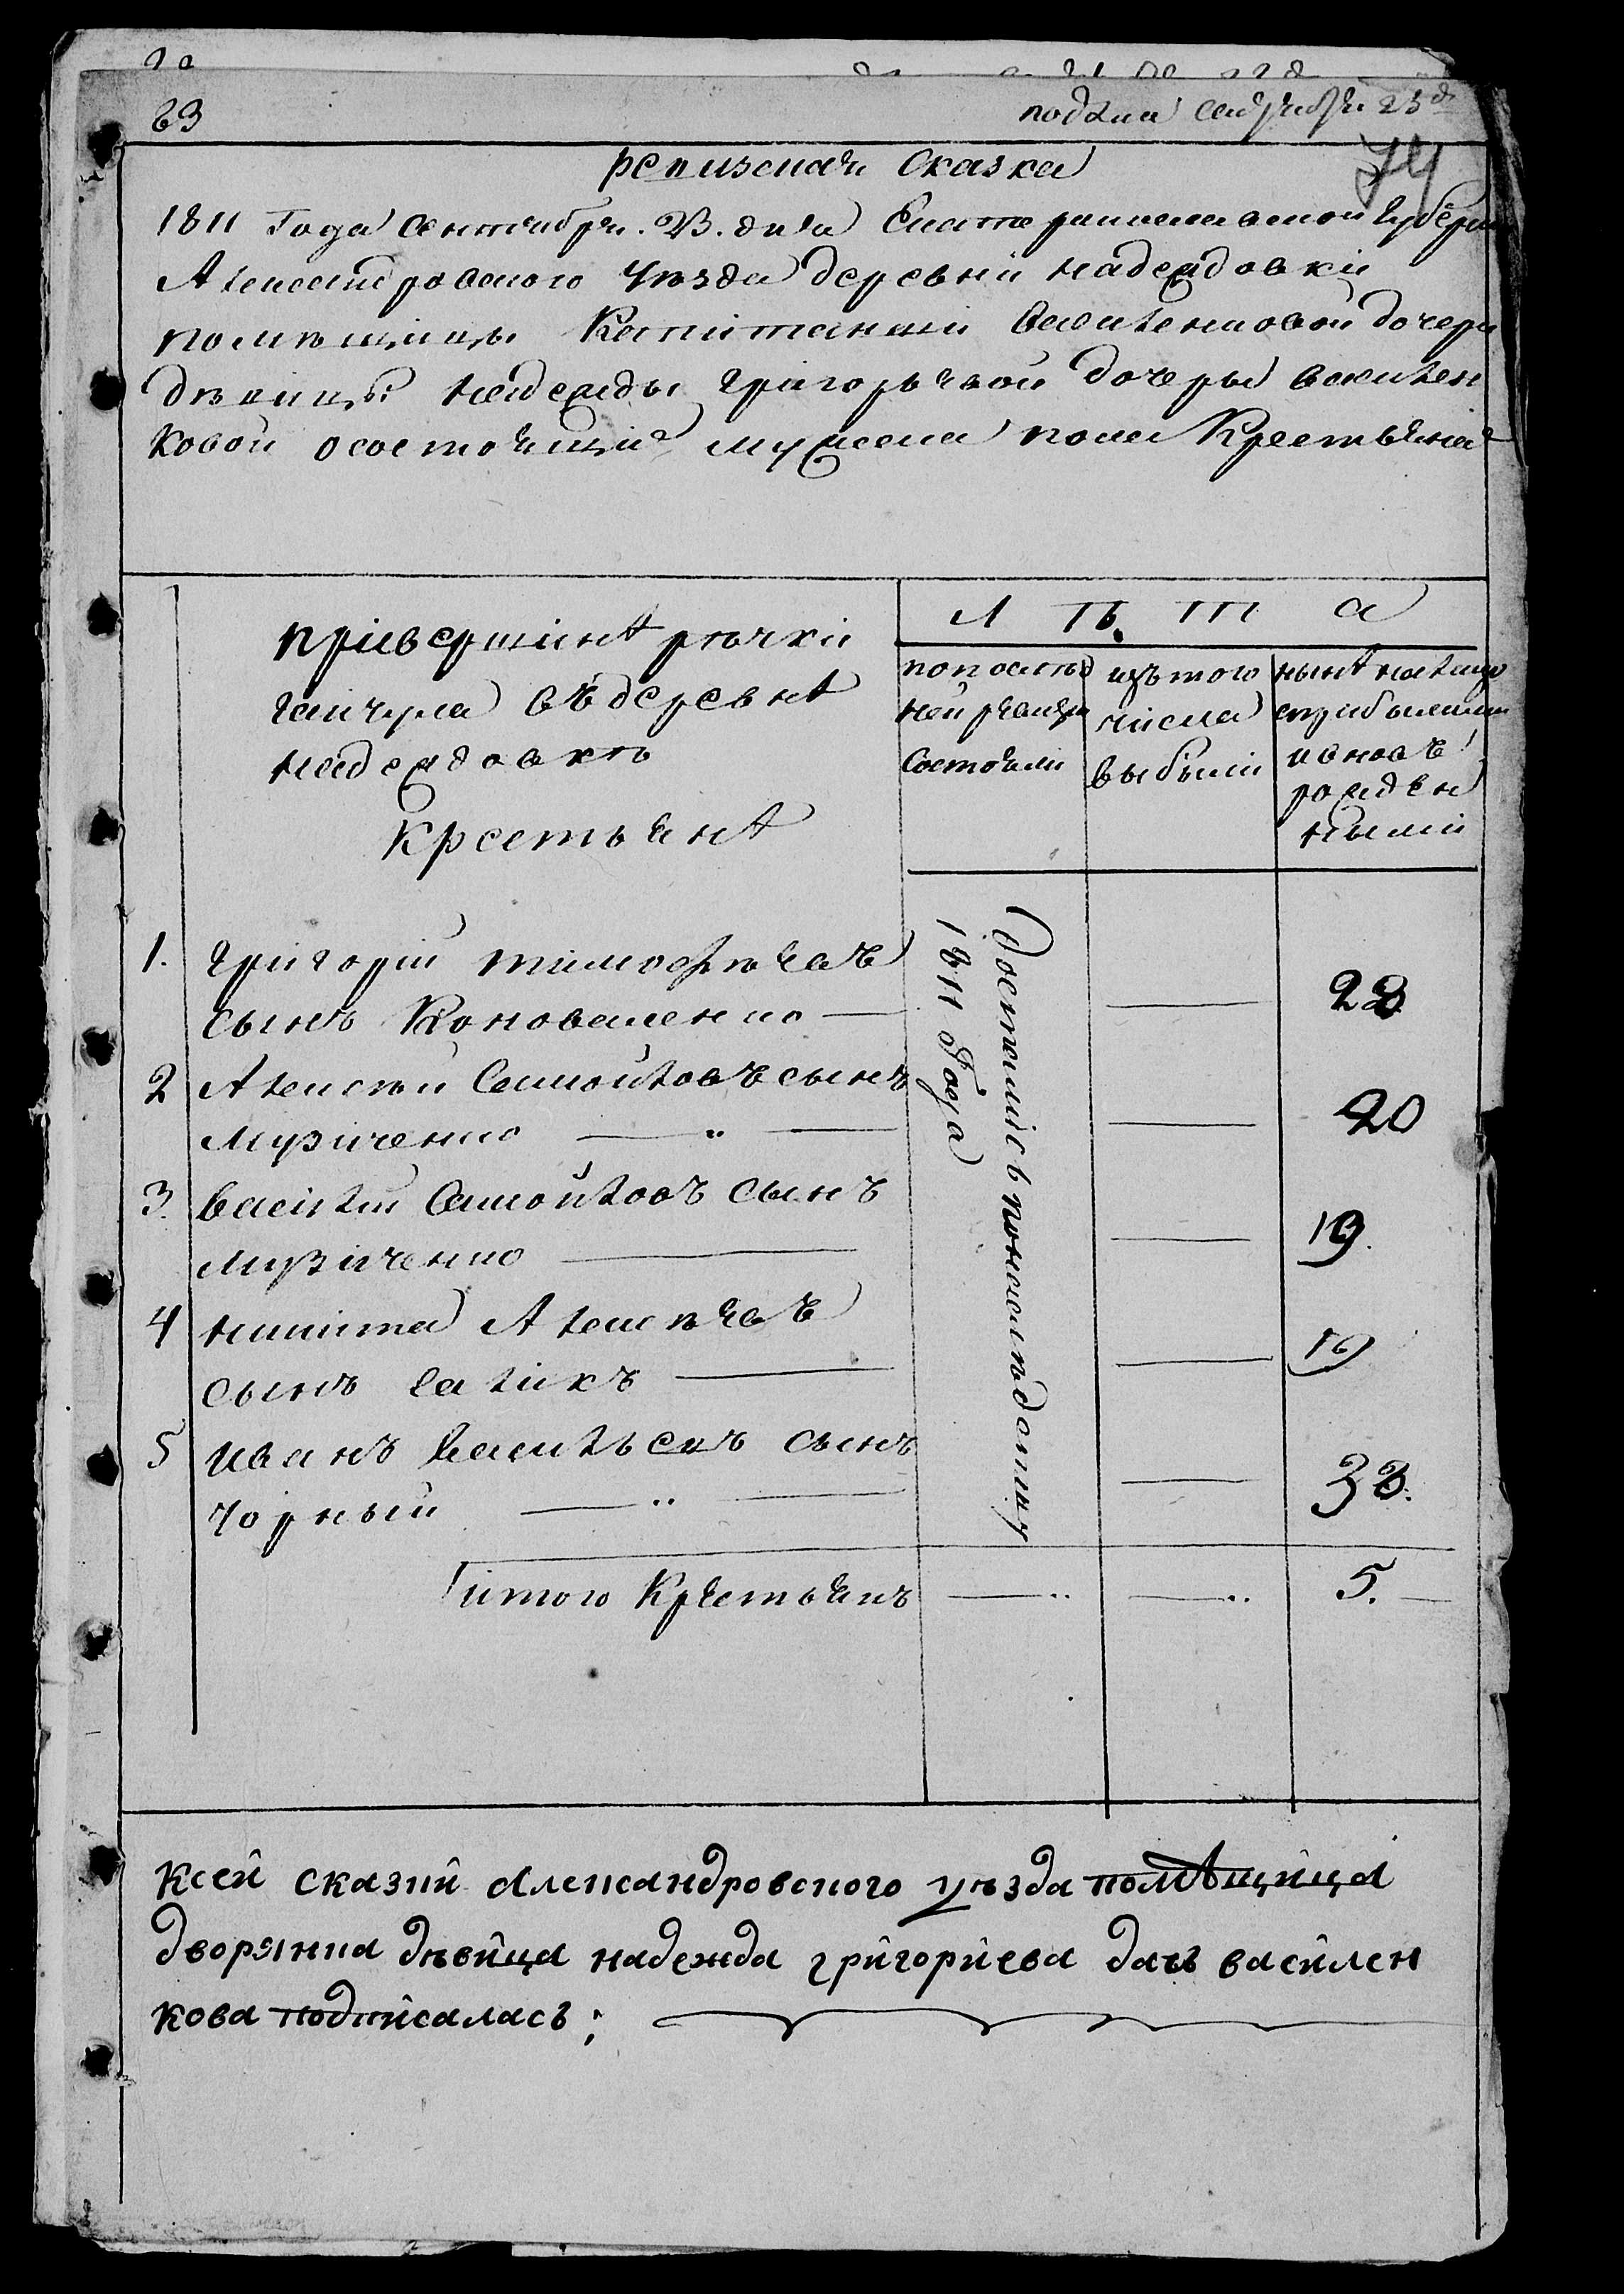 63
подана Сентября 23 д
74
ревизская Сказка
1811 Года Сентября 23 дня Екатеринославской губерни
Александровского уѣзда деревни надеждовки
помѣщицы Капитанши Василенковой дочери
дѣвицы надежды григорьевой дочеры василен
ковой осостоящих мужеска пола Крестьянах
Л Ѣ Т А
привершинѣ рѣчки
гайчула въ деревнѣ
надеждовкѣ
Крестьянѣ
попослѣд
ней ревизи
Состояли
изъ того
числа
выбыли
нынѣ налицо
сприбылыми
и вновь
рожден
ными
Досталис в
1811 Года
1. григорий тимофѣевъ 23
сынъ Коноваленко
2 Алексѣй Самойловъ сынъ 20
Музиченко
3. василий Самойловъ сынъ 19.
Музиченко
4 никита Алексѣевъ 19
сынъ
5 иванъ Васильевъ сынъ 33.
чорный
итого Крестьянъ 5.
ксей сказки александровского уѣзда помѣщица
дворянка дѣвица надежда григориева дочь василен
кова подписалась;